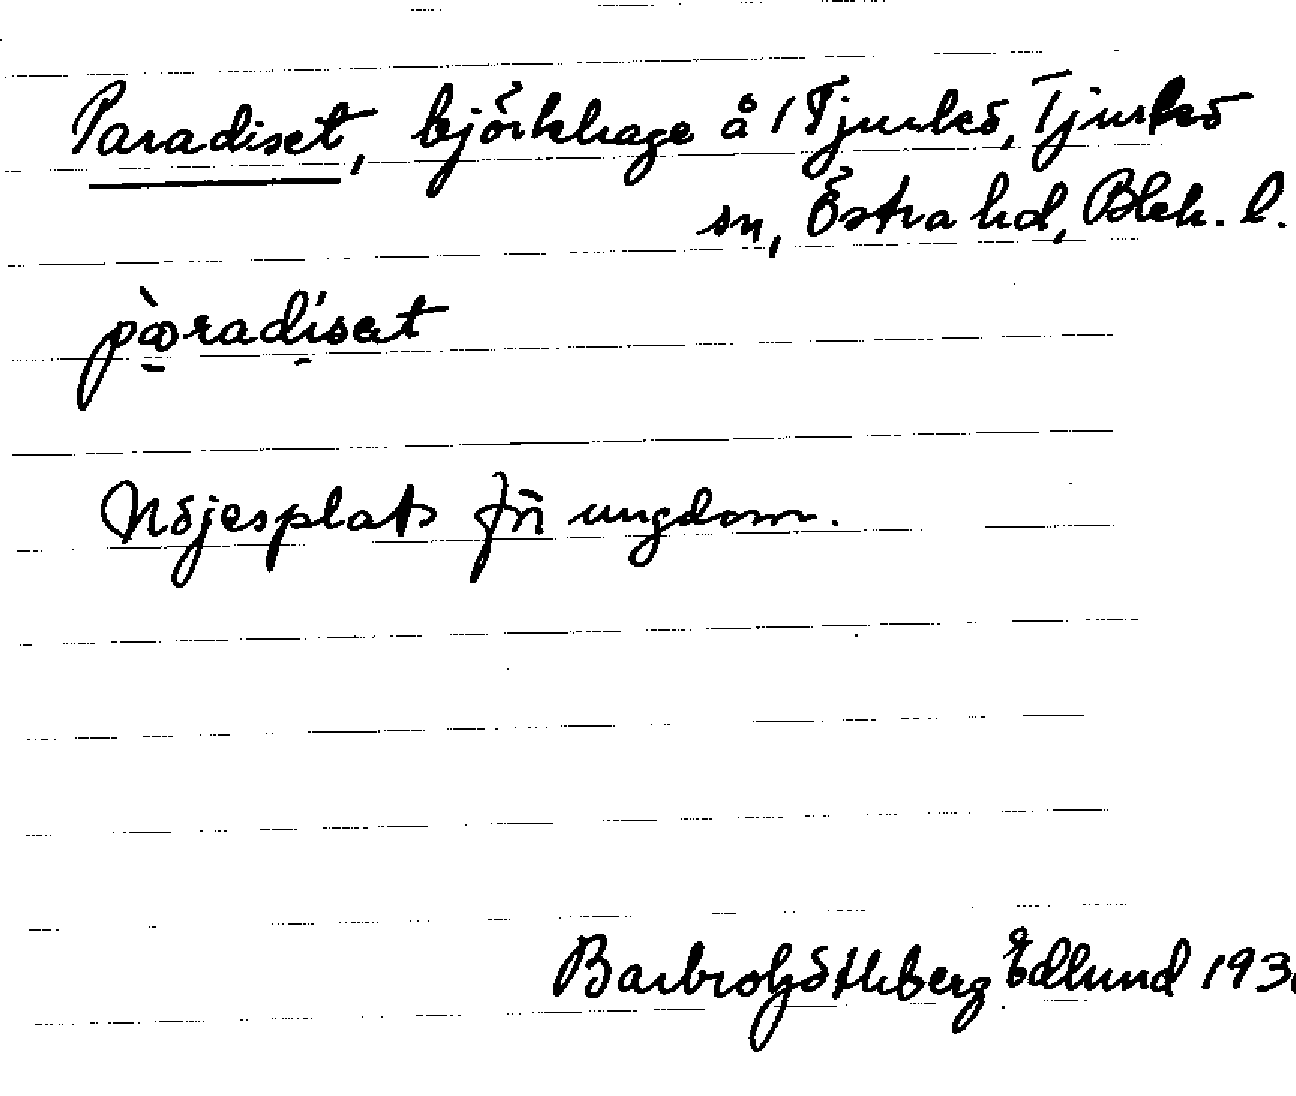 Paradiset, björkhage å 1 Tjurkö, Tjurkö
sn, Östra hd, Blek. l.
pàradísat
Nöjesplats för ungdom.
Barbro Götleberg Edlund 193